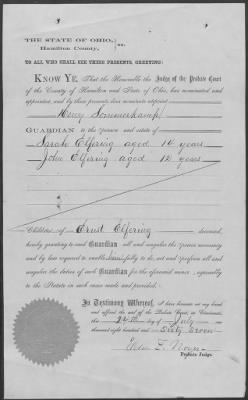 THE STATE OF OHIO,
Hamilton County, ss.
TO ALL WHO SHALL SEE THESE PRESENTS, GREETING:
KNOW YE, That the Honorable the Judge of the Probate Court
of the County of Hamilton and State of Ohio, has nominated and
appointed, and by these presents does nominate appoint
Henry Sommerkamp
GUARDIAN to the person and estate of
Sarah Elfering aged 14 years
John Elfering aged 12 years
Children of Ernst Elfering deceased,
hereby granting to said Guardian all and singular the power necessary
and by law required to enable him fully to do, act and perform all and
singular the duties of such Guardian for the aforesaid minors, agreeably
to the Statute in such cases made and provided.
In Testimony Whereof, I have hereunto set my hand
and affixed the seal of the Probate Court, at Cincinnati,
this 24th day of July
thousand eight hundred and Sixty Seven
Probate Judge.